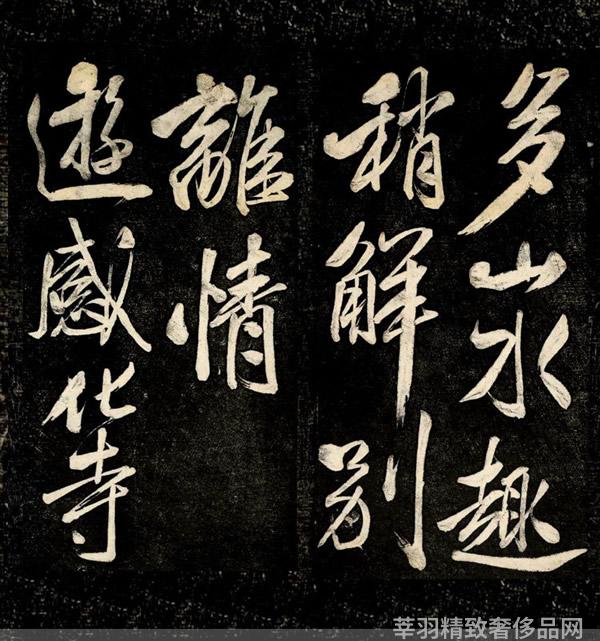 多山水趣
稍解别
離情
遊感化寺
莘羽精致奢侈品网